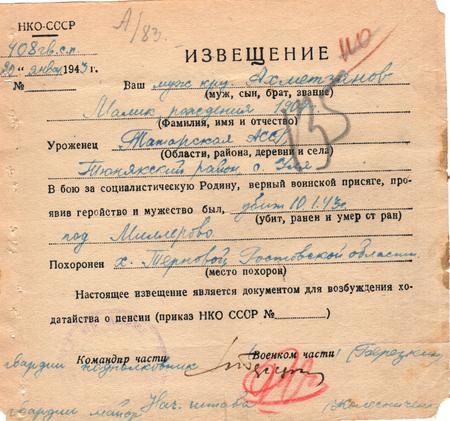 НКО-СССР
А/83.
408 гв. с.п.
ИЗВЕЩЕНИЕ
110
"20" янва 1943 г.
№
Ваш муж кр. Ахметзянов
(муж, сын, брат, звание)
Малик рождения 190
(Фамилия, имя и отчество)
Уроженец Татарская АССР
(Области, района, деревни и села)
район с.
В бою за социалистическую Родину, верный воинской присяге, про-
явив геройство и мужество был, убит 10.1.43 г.
(убит, ранен и умер от ран)
под Миллерово
Похоронен х. Терновой Ростовской области
(место похорон)
Настоящее извещение является документом для возбуждения хо-
датайства о пенсии (приказ НКО СССР № )
Командир части Военком части
гвардии подполковник
гвардии майор Нач. штаба